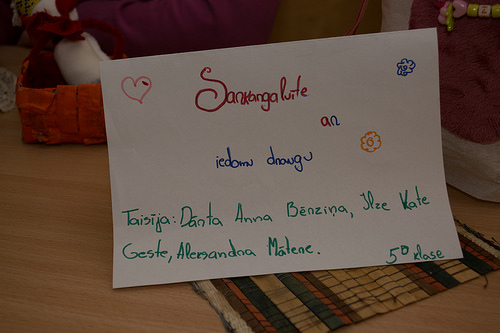 Sarkangalvīte
an
iedomu draugu
Taisīja: Dārta Anna Bērziņa, Ilze Kate
Geste, Aleksandra Mātere.
5D klase